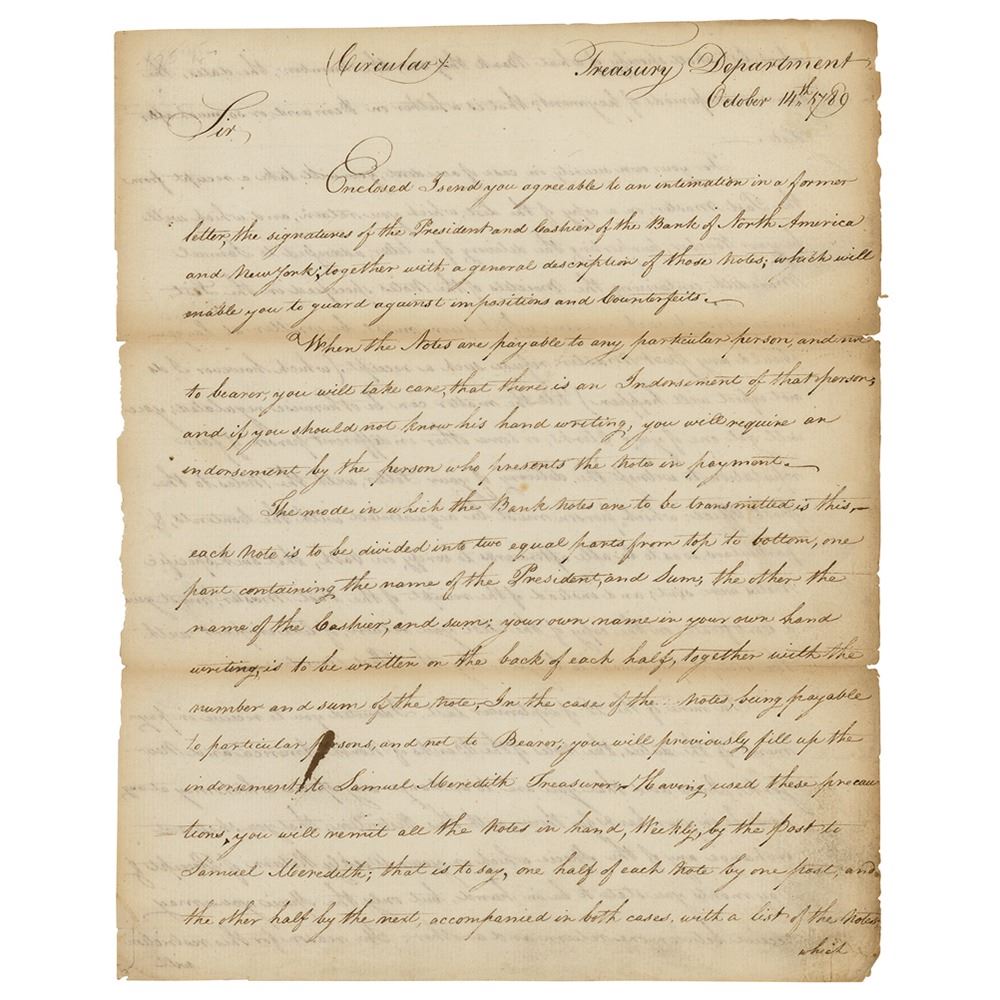 (Circular)
Treasury Department
October 14th. 1789
Sir,
Enclosed I send you agreeable to an intimation in a former
letter, the signatures of the President and Cashier of the Bank of North America
and New York; together with a general description of those Notes; which will
enable you to guard against impositions and Counterfeits.
When the Notes are payable to any particular person, and not
to bearer, you will take care, that there is an Indorsement of that person;
and if you should not know his hand writing, you will require an
indorsement by the person who presents the Note in payment.
The mode in which the Bank Notes are to be transmitted is this,
each Note is to be divided into two equal parts from top to bottom, one
part containing the name of the President, and Sum; the other the
name of the Cashier, and sum; your own name in your own hand
writing, is to be written on the back of each half, together with the
number and sum of the Note, In the case of the Notes, being payable
to particular persons, and not to Bearer, you will previously fill up the
indorsement, to Samuel Meredith Treasurer. Having used these precau
tions, you will remit all the Notes in hand, Weekly, by the Post to
Samuel Meredith; that is to say, one half of each Note by one post, and
the other half by the next, accompanied in both cases, with a list of the Notes,
which